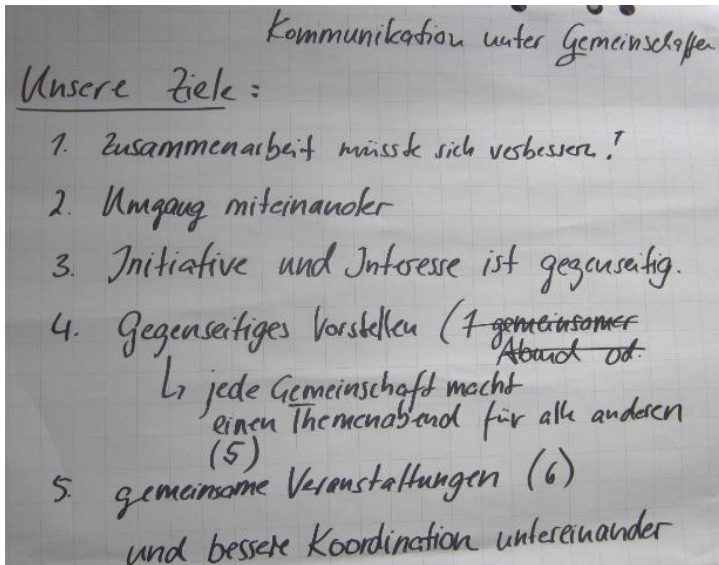 Kommunikation unter Gemeinschaften
Unsere Ziele:
1. Zusammenarbeit müsste sich verbessern!
2. Umgang miteinander
3. Initiative und Interesse ist gegenseitig.
4. Gegenseitiges Vorstellen (1 gemeinsamer
Abend od.
↳ jede Gemeinschaft macht
einen Themenabend für alle anderen
(5)
5. gemeinsame Veranstaltungen (6)
und bessere Koordination untereinander